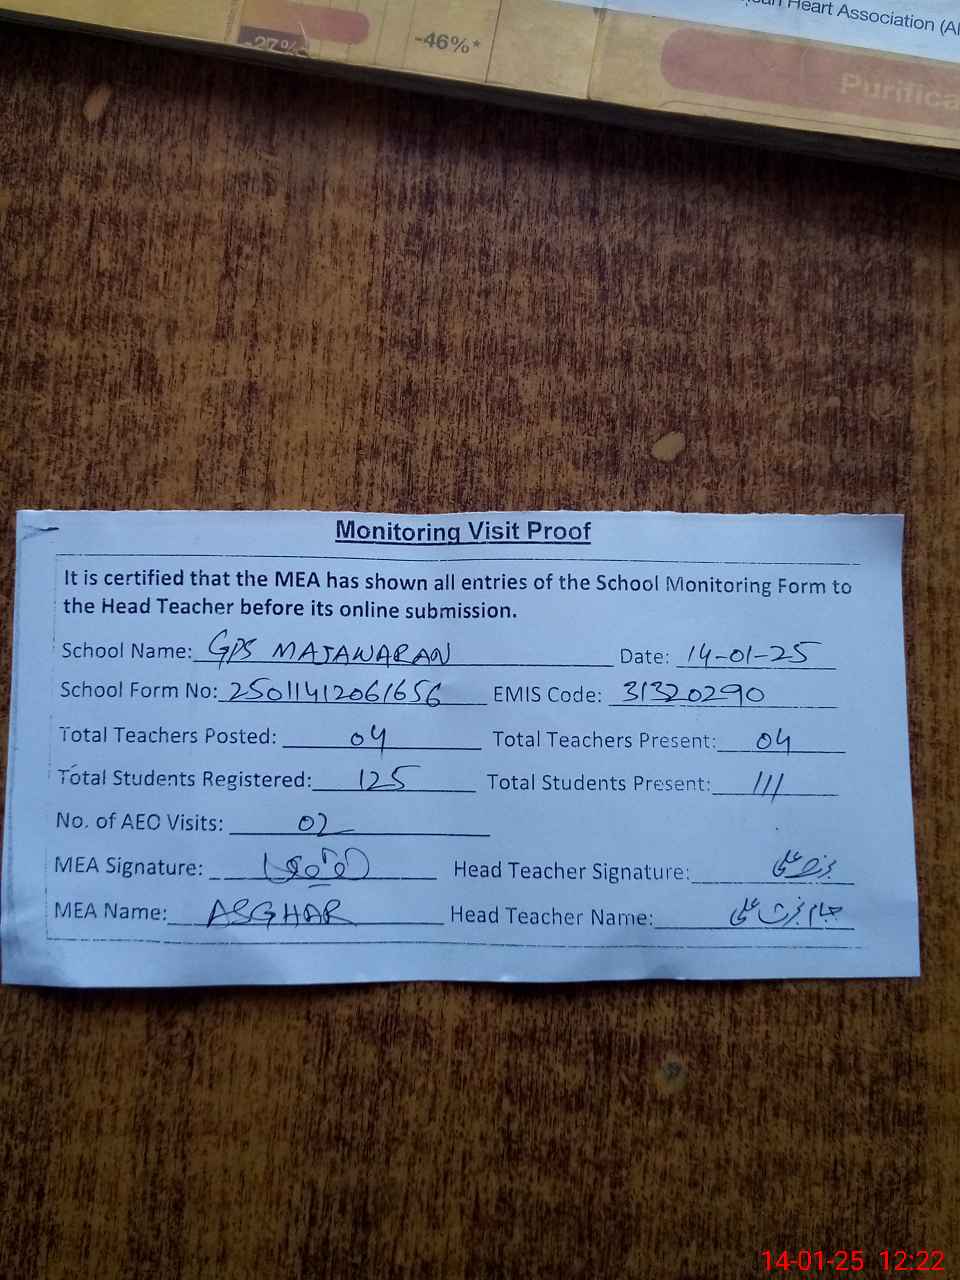 -27%
-46%*
an Heart Association (A
Purifica
Monitoring Visit Proof
It is certified that the MEA has shown all entries of the School Monitoring Form to
the Head Teacher before its online submission.
School Name: GPS MAJAWARAN Date: 14-01-25
School Form No: 25011412061656 EMIS Code: 31320290
Total Teachers Posted: 04 Total Teachers Present: 04
Total Students Registered: 125 Total Students Present: 111
No. of AEO Visits: 02
MEA Signature: Head Teacher Signature:
MEA Name: ASGHAR Head Teacher Name: جام علی
14-01-25 12:22